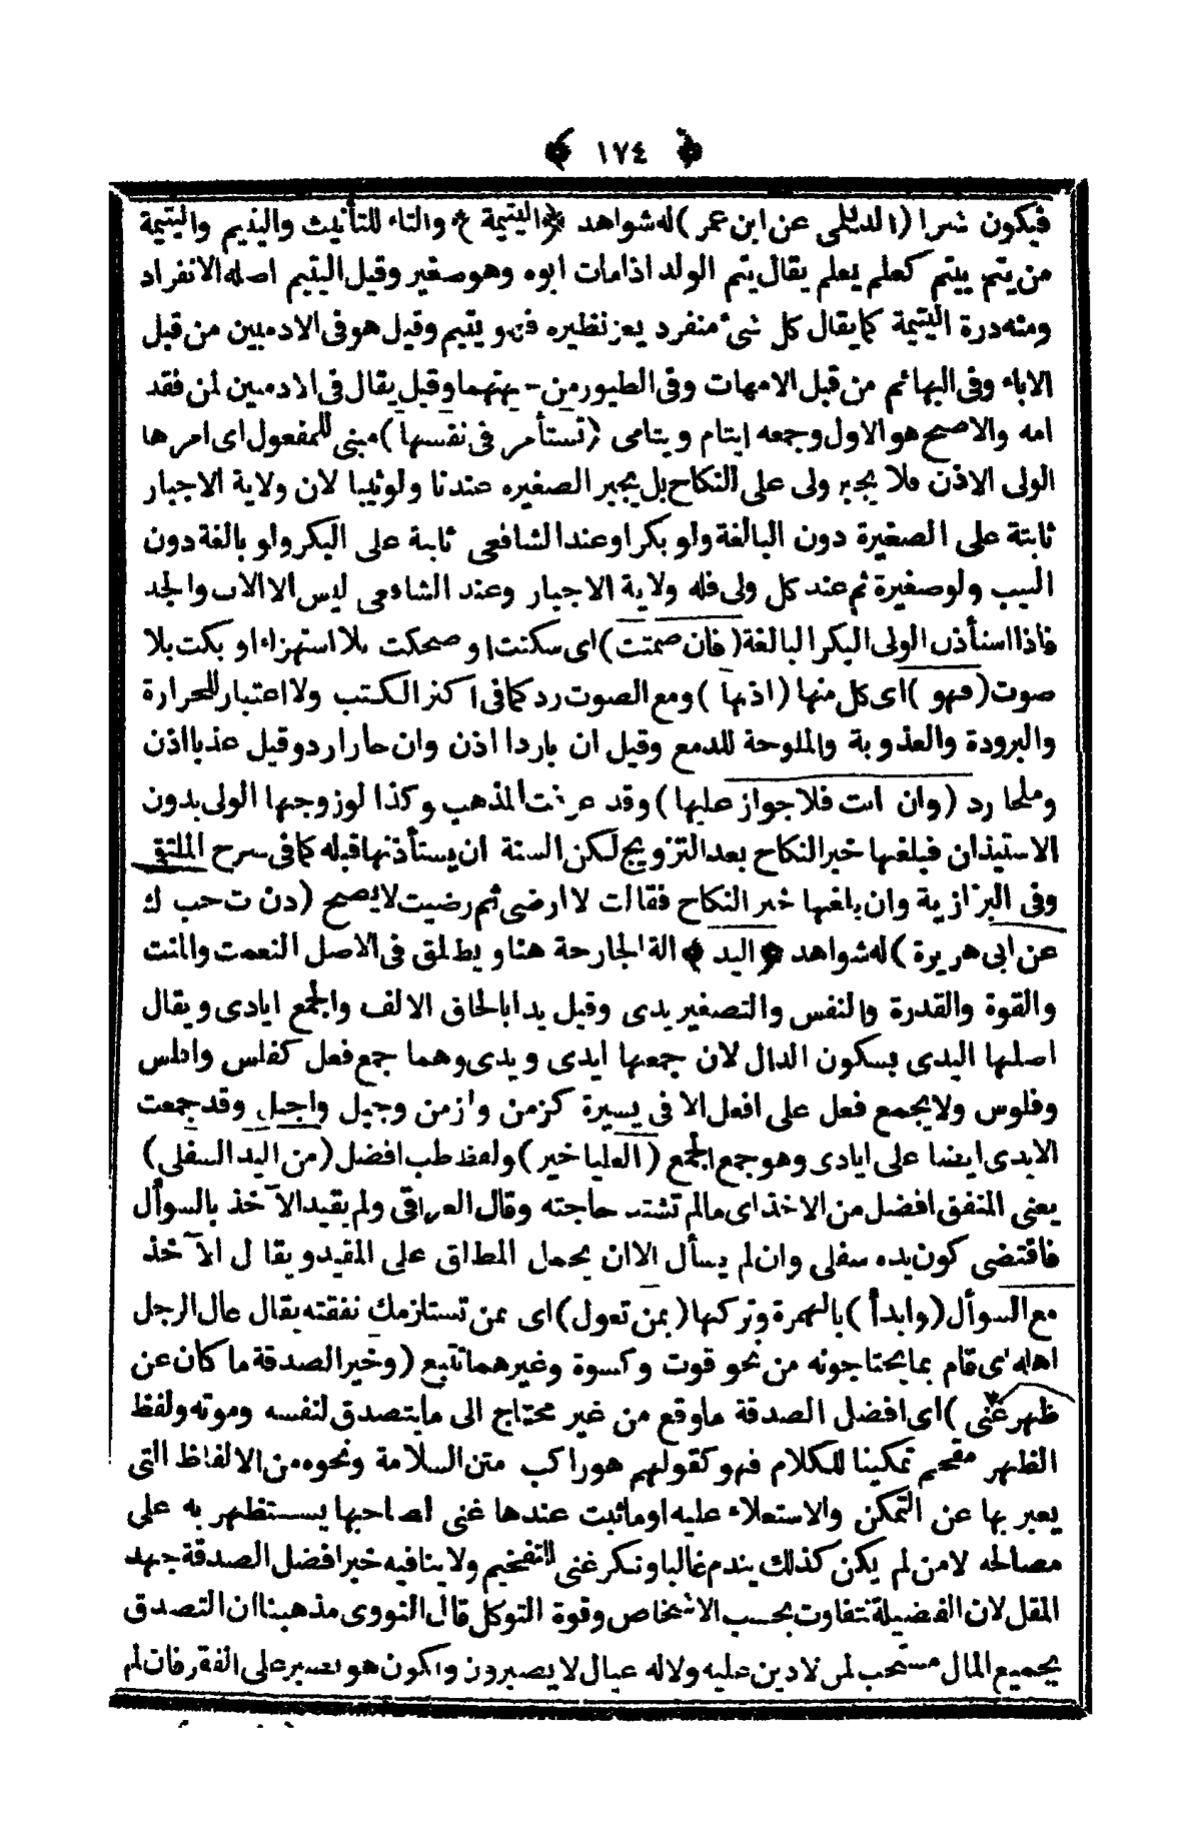 ﴿ ١٧٤ ﴾
فيكون شرا (الديلمى عن ابن عمر) له شواهد ﴿اليتيمة﴾ والتاء للتأنيث واليتيم واليتيمة
من يتم ييتم كعلم يعلم يقال يتم الولد اذا مات ابوه وهو صغير وقيل اليتيم اصله الانفراد
ومنه درة اليتيمة كما يقال كل شئ منفرد يعز نظيره فهو يتيم وقيل هو فى الادميين من قبل
الاباء وفى البهائم من قبل الامهات وفى الطيور من جهتهما وقيل يقال فى الادميين لمن فقد
امه والاصح هو الاول وجمعه ايتام ويتامى (تستأمر فى نفسها) مبنى للمفعول اى امرها
الولى الاذن فلا يجبر ولى على النكاح بل يجبر الصغيره عندنا ولو ثيبا لان ولاية الاجبار
ثابتة على الصغيرة دون البالغة ولو بكرا وعند الشافعى ثابتة على البكر ولو بالغة دون
الثيب ولو صغيرة ثم عند كل ولى فله ولاية الاجبار وعند الشافعى ليس الا الاب والجد
فاذا استأذن الولى البكر البالغة (فان صمتت) اى سكتت او ضحكت بلا استهزاء او بكت بلا
صوت (فهو) اى كل منها (اذنها) ومع الصوت رد كما فى اكثر الكتب ولا اعتبار للحرارة
والبرودة والعذوبة والملوحة للدمع وقيل ان باردا اذن وان حارا رد وقيل عذبا اذن
وملحا رد (وان ابت فلا جواز عليها) وقد عرفت المذهب وكذا لو زوجها الولى بدون
الاستيذان فبلغها خبر النكاح بعد التزويج لكن السنة ان يستأذنها قبله كما فى شرح الملتقى
وفى البزازية وان بلغها خبر النكاح فقالت لا ارضى ثم رضيت لا يصح (د ن ت حب ك
عن ابى هريرة) له شواهد ﴿اليد﴾ الة الجارحة هنا ويطلق فى الاصل النعمت والمنت
والقوة والقدرة والنفس والتصغير يدى وقيل يدا بالحاق الالف والجمع ايادى ويقال
اصلها اليدى بسكون الدال لان جمعها ايدى ويدى وهما جمع فعل كفلس وافلس
وفلوس ولا يجمع فعل على افعل الا فى يسيرة كزمن وازمن وجبل واجبل وقد جمعت
الايدى ايضا على ايادى وهو جمع الجمع (العليا خير) ولفظ طب افضل (من اليد السفلى)
يعنى المنفق افضل من الاخذ اى ما لم تشتد حاجته وقال العراقى ولم يقيد الآخذ بالسوأل
فاقتضى كون يده سفلى وان لم يسأل الا ان يحمل المطلق على المقيد ويقال الآخذ
مع السوأل (وابدأ) بالهمزة وتركها (بمن تعول) اى بمن تستلزمك نفقته يقال عال الرجل
اهله اى قام بما يحتاجونه من نحو قوت وكسوة وغيرهما تتبع (وخير الصدقة ما كان عن
ظهر غنى) اى افضل الصدقة ما وقع من غير محتاج الى ما يتصدق لنفسه وموته ولفظ
الظهر مقحم تمكينا للكلام فهو كقولهم هو راكب متن السلامة ونحوه من الالفاظ التى
يعبر بها عن التمكن والاستعلاء عليه او ما ثبت عندها غنى لصاحبها يستظهر به على
مصالحه لا من لم يكن كذلك يندم غالبا ونكر غنى للتفخيم ولا ينافيه خبر افضل الصدقة جهد
المقل لان الفضيلة تتفاوت بحسب الاشخاص وقوة التوكل قال النووى مذهبنا ان التصدق
بجميع المال مستحب لمن لا دين عليه ولا له عيال لا يصبرون ويكون هو يصبر على الفقر فان لم